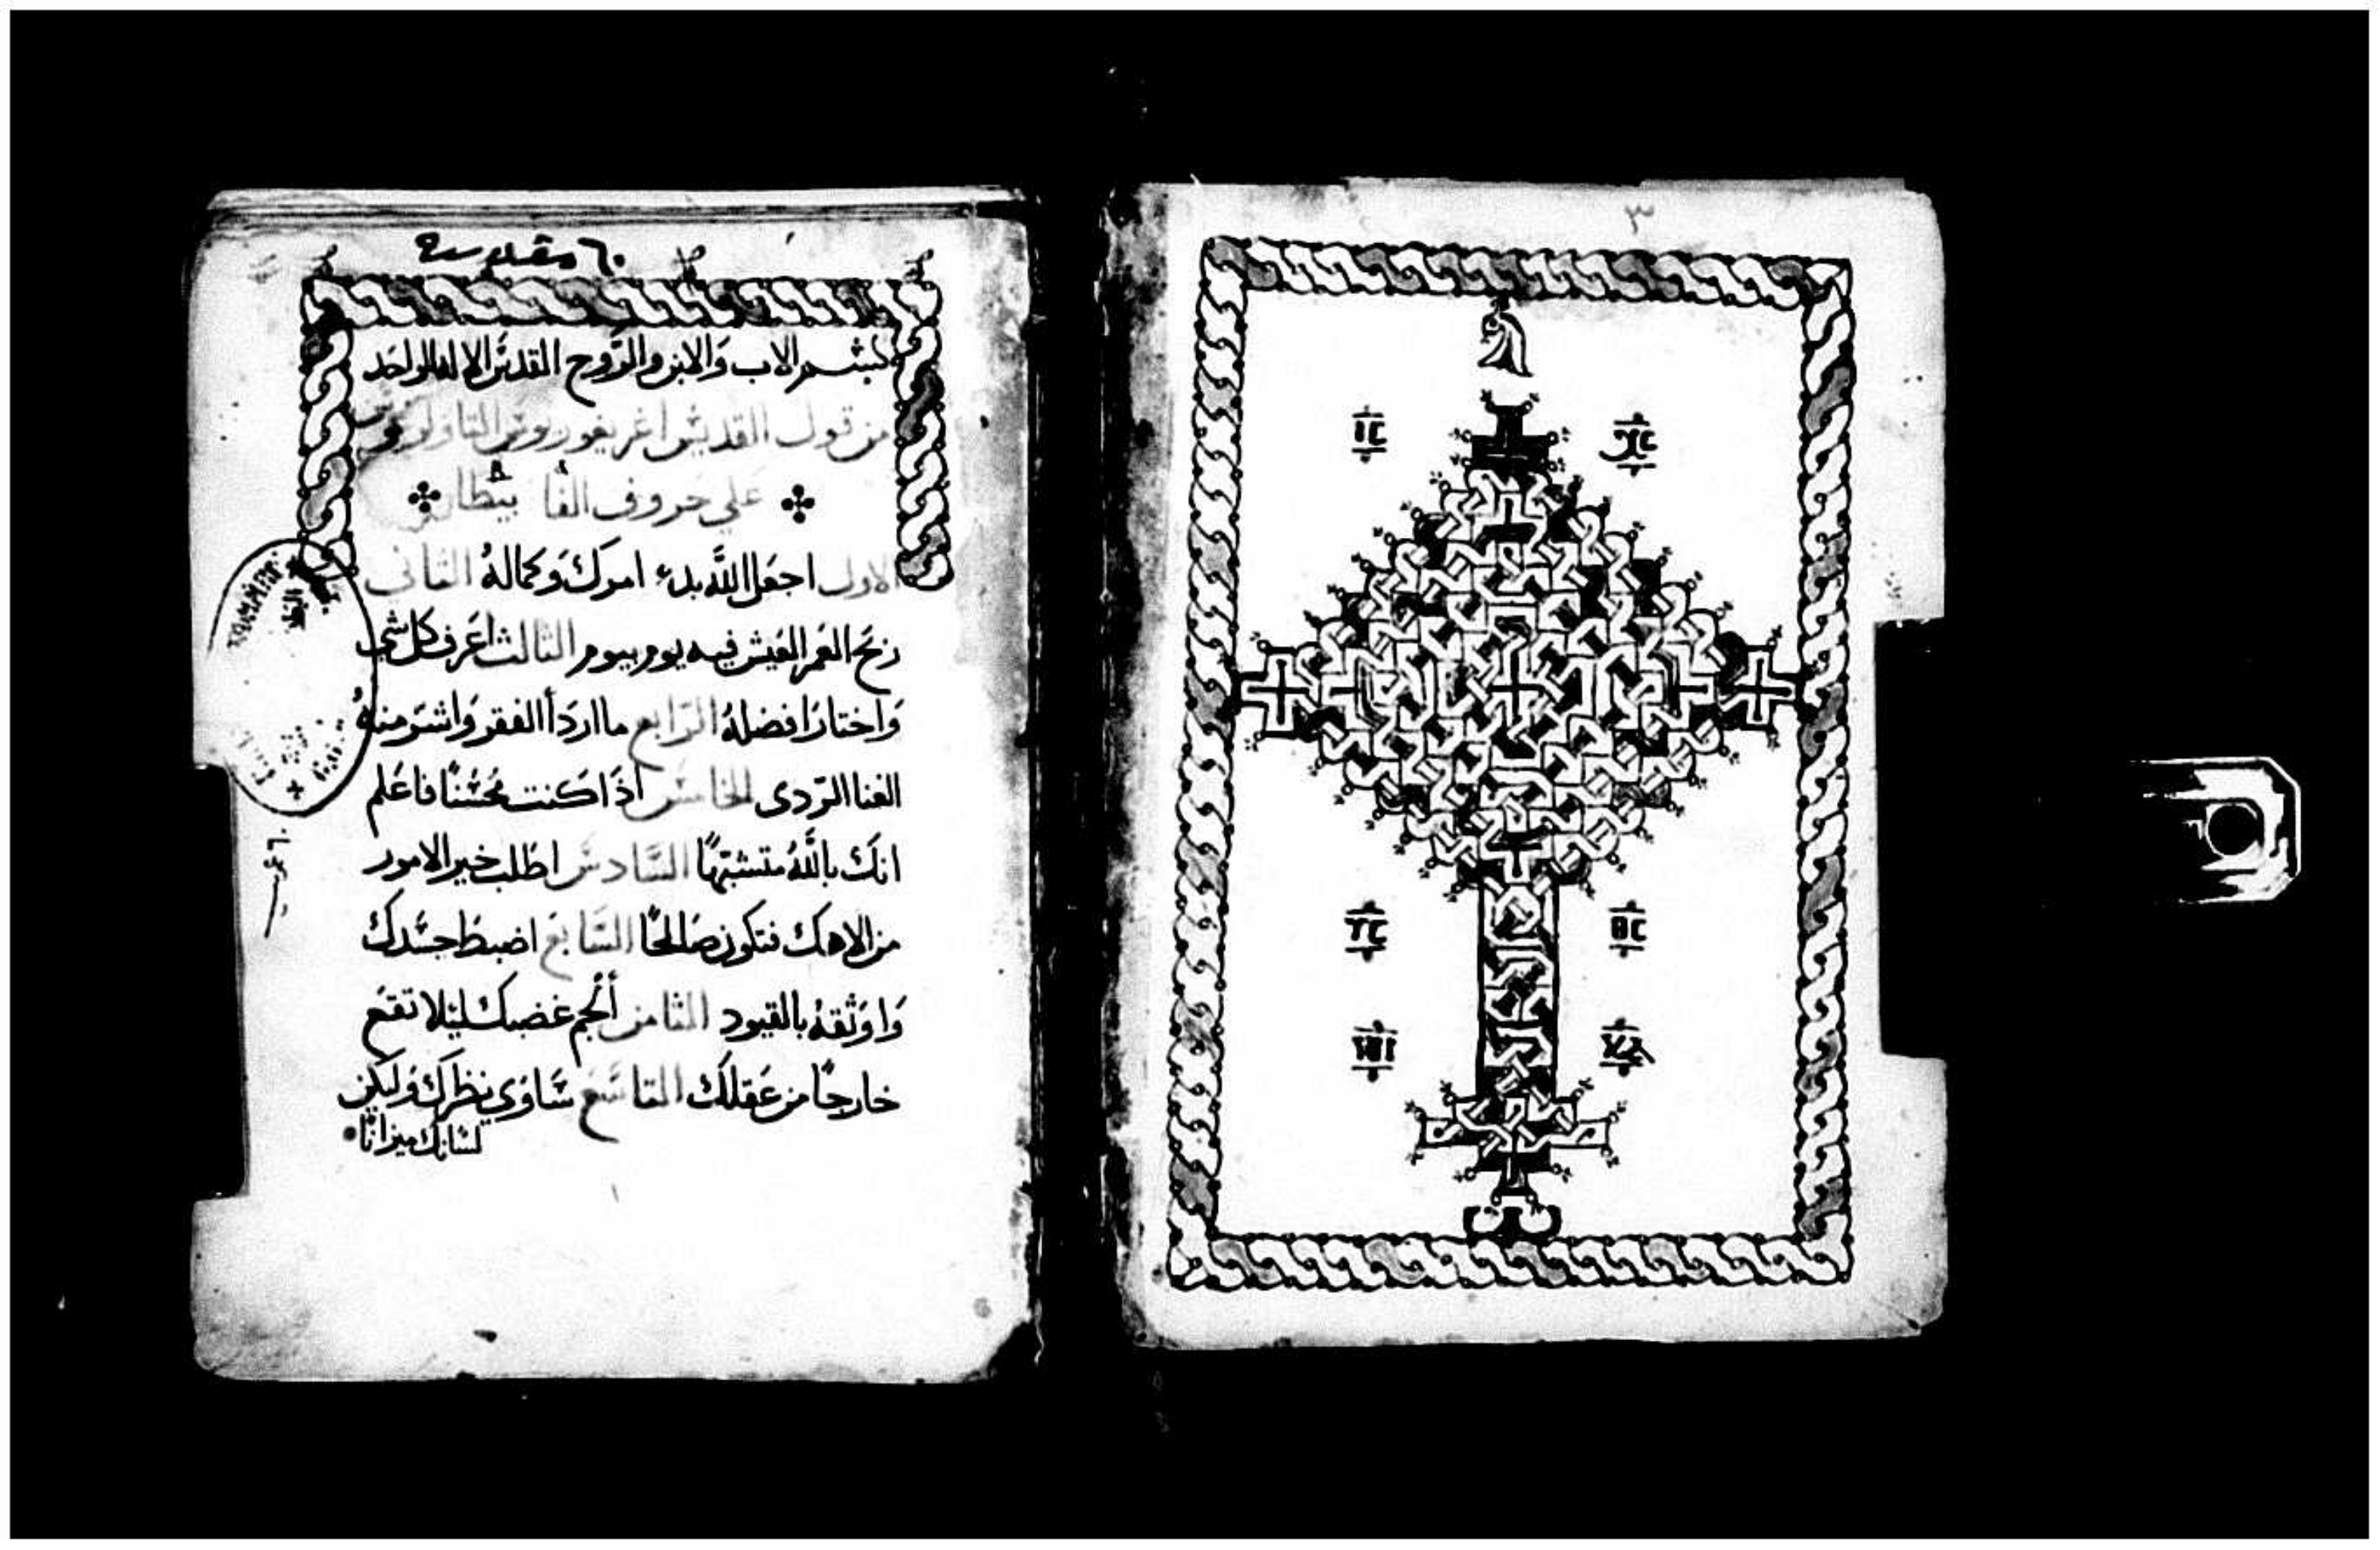 ٣
ⲓ̅ⲥ̅ ⲭ̅ⲥ̅
ⲩ̅ⲥ̅ ⲑ̅ⲥ̅
٦٠ مقدسه
بسم الاب والابن والروح القدس الاله الواحد
من قول القديس اغريغوريوس التاولوغس
علي حروف الفا بيطا
الاول اجعل الله بدء امورك وكماله الثاني
ربح العمر العيش فيه يوم بيوم الثالث اعرف كل شي
واختار افضله الرابع ما اردأ الفقر واشر منه
الغنا الردى الخامس اذا كنت محسنًا فاعلم
انك بالله متشبهًا السادس اطلب خير الامور
من الاهك فتكون صالحًا السابع اضبط جسدك
واوثقه بالقيود الثامن ألجم غضبك ليلا تقع
خارجًا من عقلك التاسع ساوي نظرك وليكن
لسانك ميزانًا